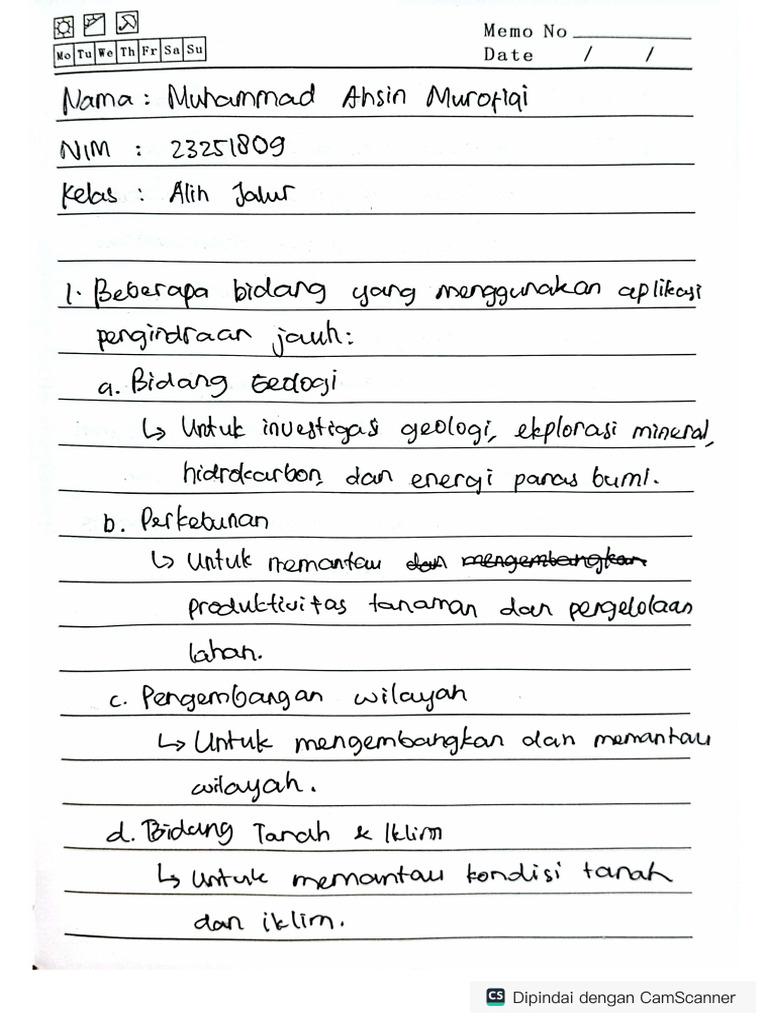 Memo No
Mo Tu We Th Fr Sa Su
Date / /
Nama : Muhammad Ahsin Murofiqi
NIM : 23251809
Kelas : Alih Jalur
1. Beberapa bidang yang menggunakan aplikasi
pengindraan jauh:
a. Bidang Geologi
↳ Untuk investigasi geologi, ekplorasi mineral,
hidrokarbon, dan energi panas bumi.
b. Perkebunan
↳ Untuk memantau dan mengembangkan
produktivitas tanaman dan pengelolaan
lahan.
c. Pengembangan wilayah
↳ Untuk mengembangkan dan memantau
wilayah.
d. Bidang Tanah & Iklim
↳ Untuk memantau kondisi tanah
dan iklim.
CS Dipindai dengan CamScanner